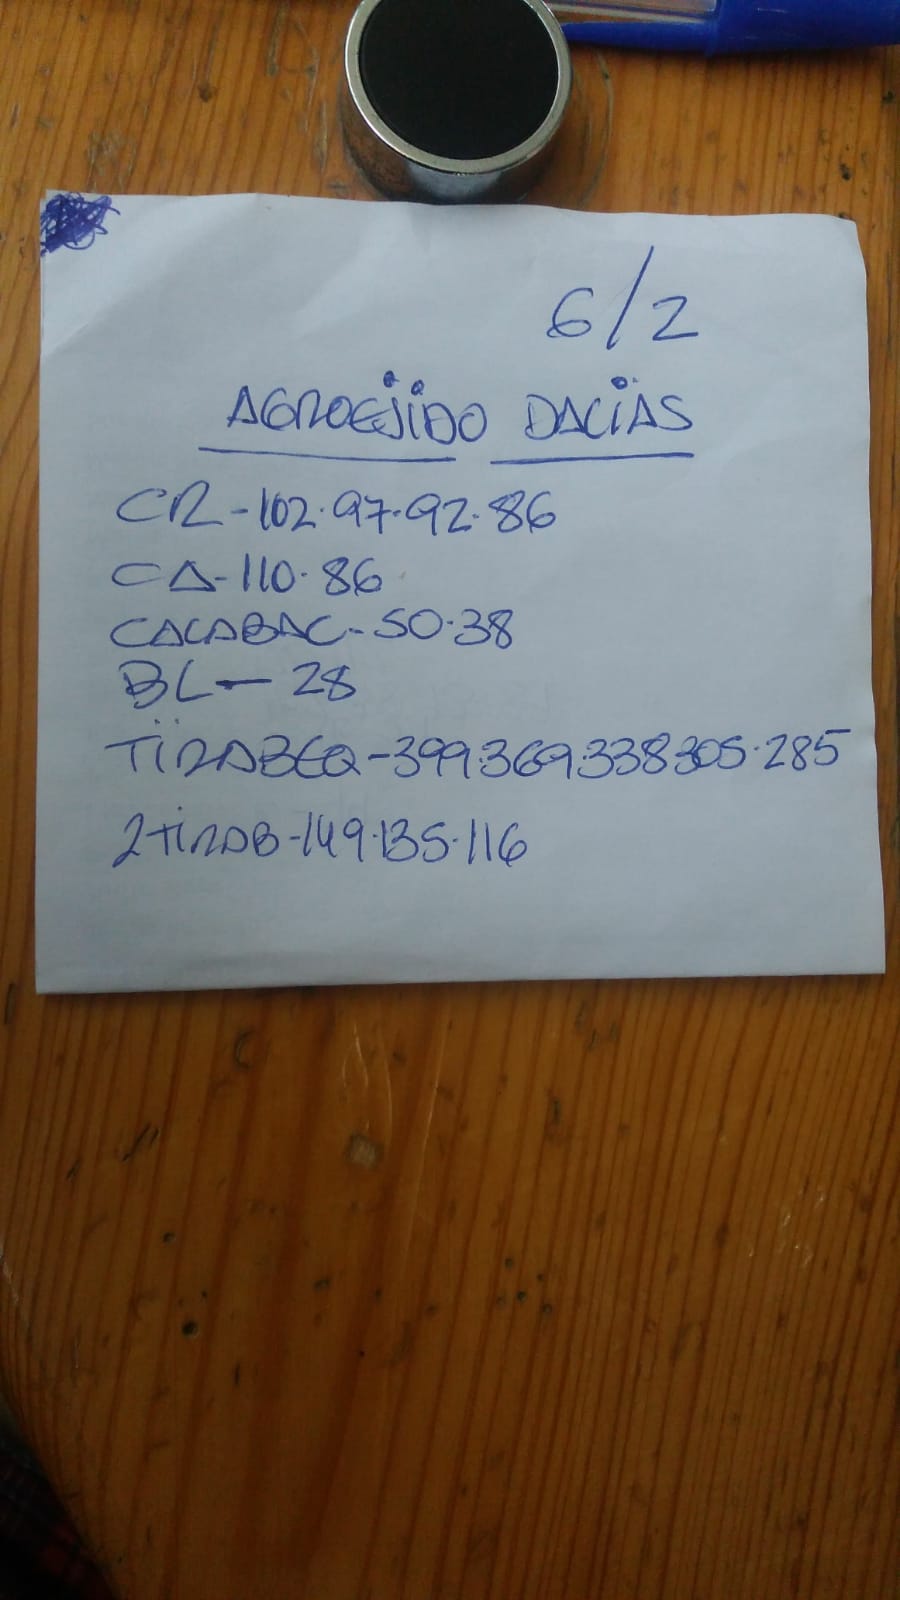 6/2
AGROEJIDO DALIAS
CR-102.97.92.86
CA-110.86
CALABAC-50.38
BL-28
TIRABEQ-399.369.338 305.285
2TIRAB-149.135.116